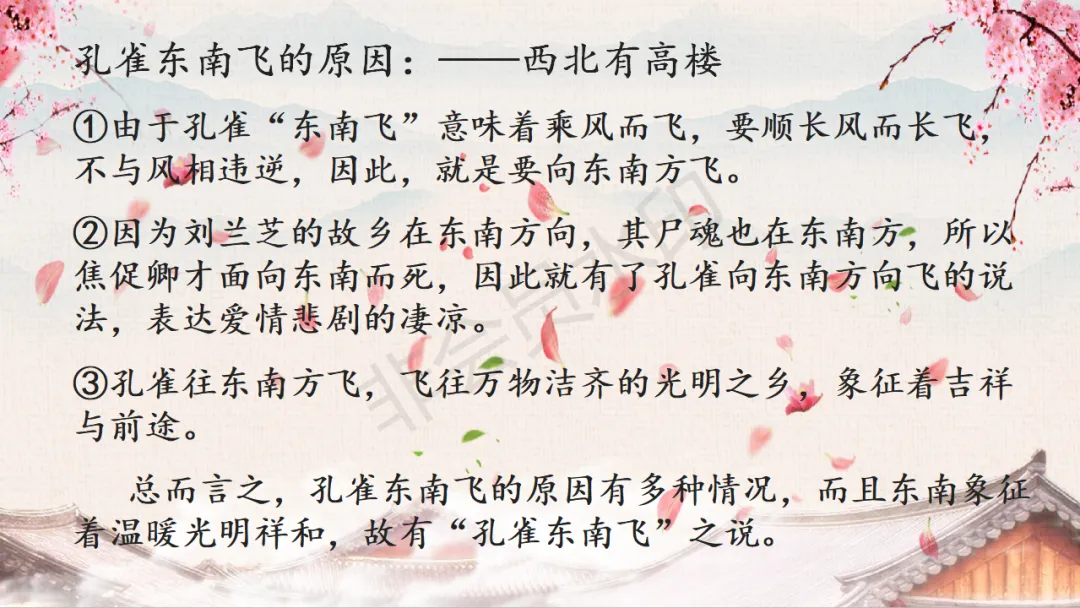 孔雀东南飞的原因：——西北有高楼
①由于孔雀“东南飞”意味着乘风而飞，要顺长风而长飞，
不与风相违逆，因此，就是要向东南方飞。
②因为刘兰芝的故乡在东南方向，其尸魂也在东南方，所以
焦促卿才面向东南而死，因此就有了孔雀向东南方向飞的说
法，表达爱情悲剧的凄凉。
③孔雀往东南方飞，飞往万物洁齐的光明之乡，象征着吉祥
与前途。
总而言之，孔雀东南飞的原因有多种情况，而且东南象征
着温暖光明祥和，故有“孔雀东南飞”之说。
非会员水印